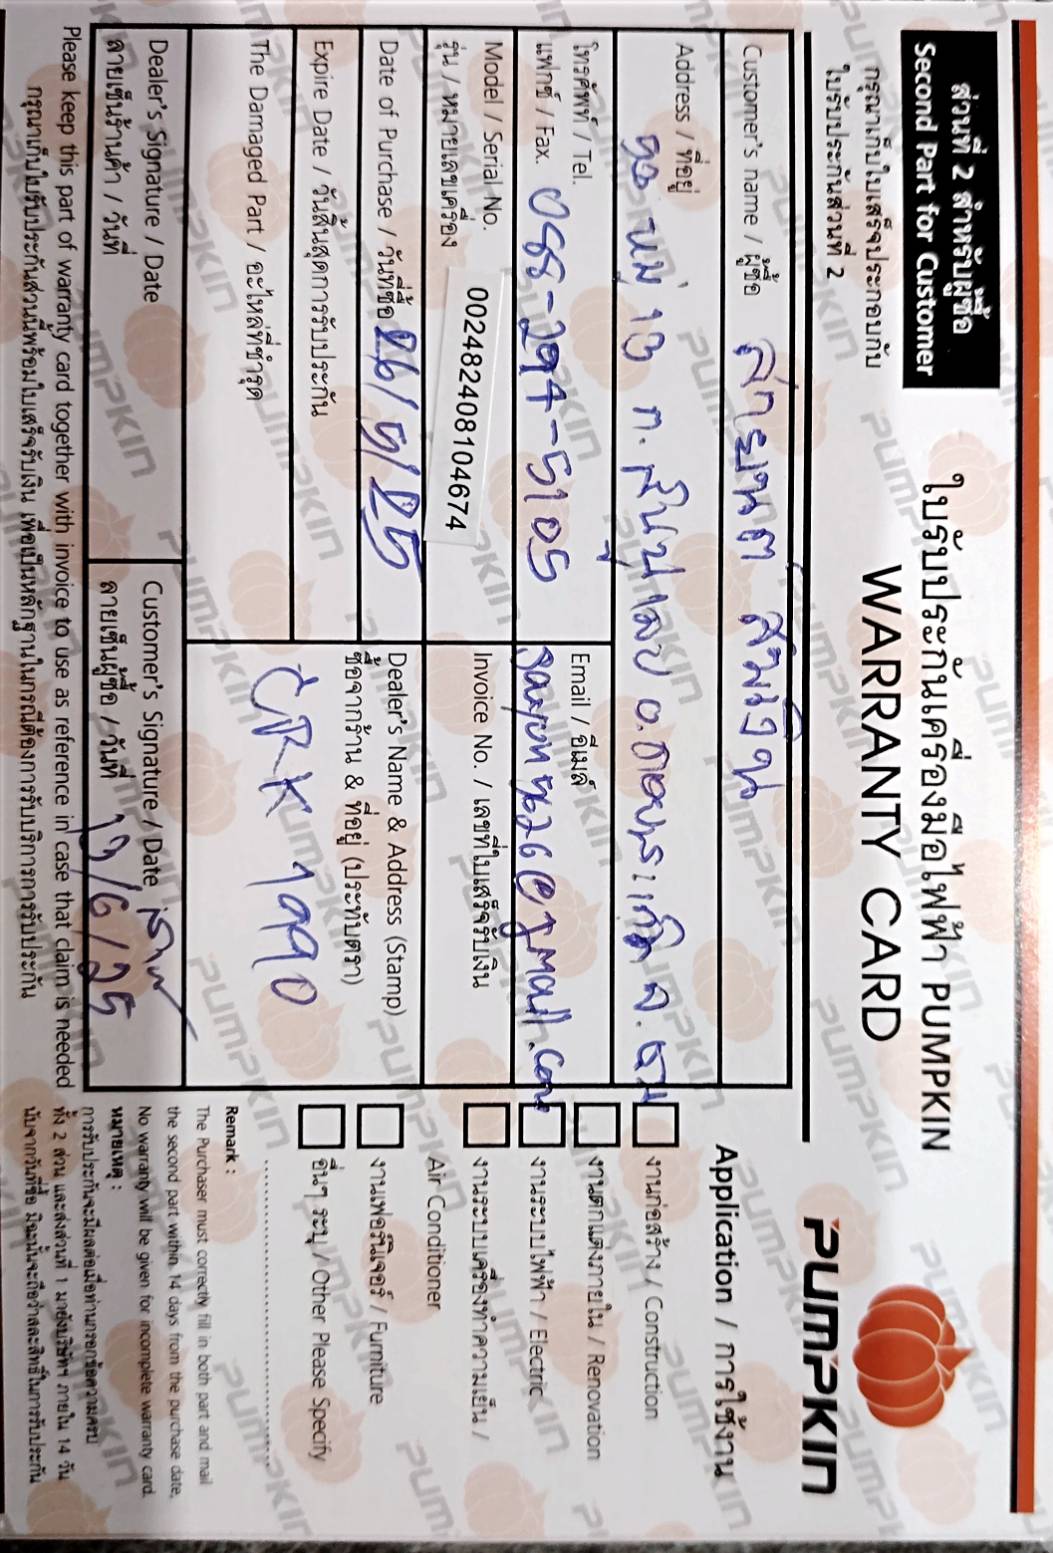 ส่วนที่ 2 สำหรับผู้ซื้อ
Second Part for Customer
กรุณาเก็บใบเสร็จประกอบกับ
ใบรับประกันส่วนที่ 2
ใบรับประกันเครื่องมือไฟฟ้า PUMPKIN
WARRANTY CARD
PUMPKIN
Customer's name / ผู้ซื้อ
Address / ที่อยู่
หมู่ 13 ต.
โทรศัพท์ / Tel.
แฟกซ์ / Fax. 088-294-5105
Email / อีเมล์
@gmail.com
Model / Serial No.
รุ่น / หมายเลขเครื่อง
00248240810467​4
Invoice No. / เลขที่ใบเสร็จรับเงิน
Date of Purchase / วันที่ซื้อ 26/5/25
Expire Date / วันสิ้นสุดการรับประกัน
The Damaged Part / อะไหล่ที่ชำรุด
Dealer's Name & Address (Stamp)
ซื้อจากร้าน & ที่อยู่ (ประทับตรา)
CRK 1990
Dealer's Signature / Date
ลายเซ็นร้านค้า / วันที่
Customer's Signature / Date
ลายเซ็นผู้ซื้อ / วันที่ 19/6/25
Please keep this part of warranty card together with invoice to use as reference in case that claim is needed
กรุณาเก็บใบรับประกันส่วนนี้พร้อมใบเสร็จรับเงิน เพื่อเป็นหลักฐานในกรณีต้องการรับบริการการรับประกัน
Application / การใช้งาน
งานก่อสร้าง / Construction
งานตกแต่งภายใน / Renovation
งานระบบไฟฟ้า / Electric
งานระบบเครื่องทำความเย็น /
Air Conditioner
งานเฟอร์นิเจอร์ / Furniture
อื่นๆ ระบุ / Other Please Specify
Remark :
The Purchaser must correctly fill in both part and mail
the second part within 14 days from the purchase date,
No warranty will be given for incomplete warranty card.
หมายเหตุ :
การรับประกันจะมีผลต่อเมื่อท่านกรอกข้อความครบ
ทั้ง 2 ส่วน และส่งส่วนที่ 1 มายังบริษัทฯ ภายใน 14 วัน
นับจากวันที่ซื้อ มิฉะนั้นจะถือว่าสละสิทธิ์ในการรับประกัน